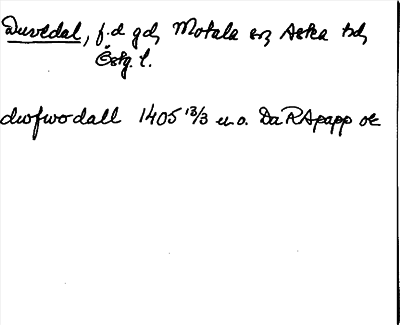 Duvedal, f.d gd, Motala sn, Aska hd,
Östg. l.
dwfwodall 1405 13/3 u.o. Da RApapp or